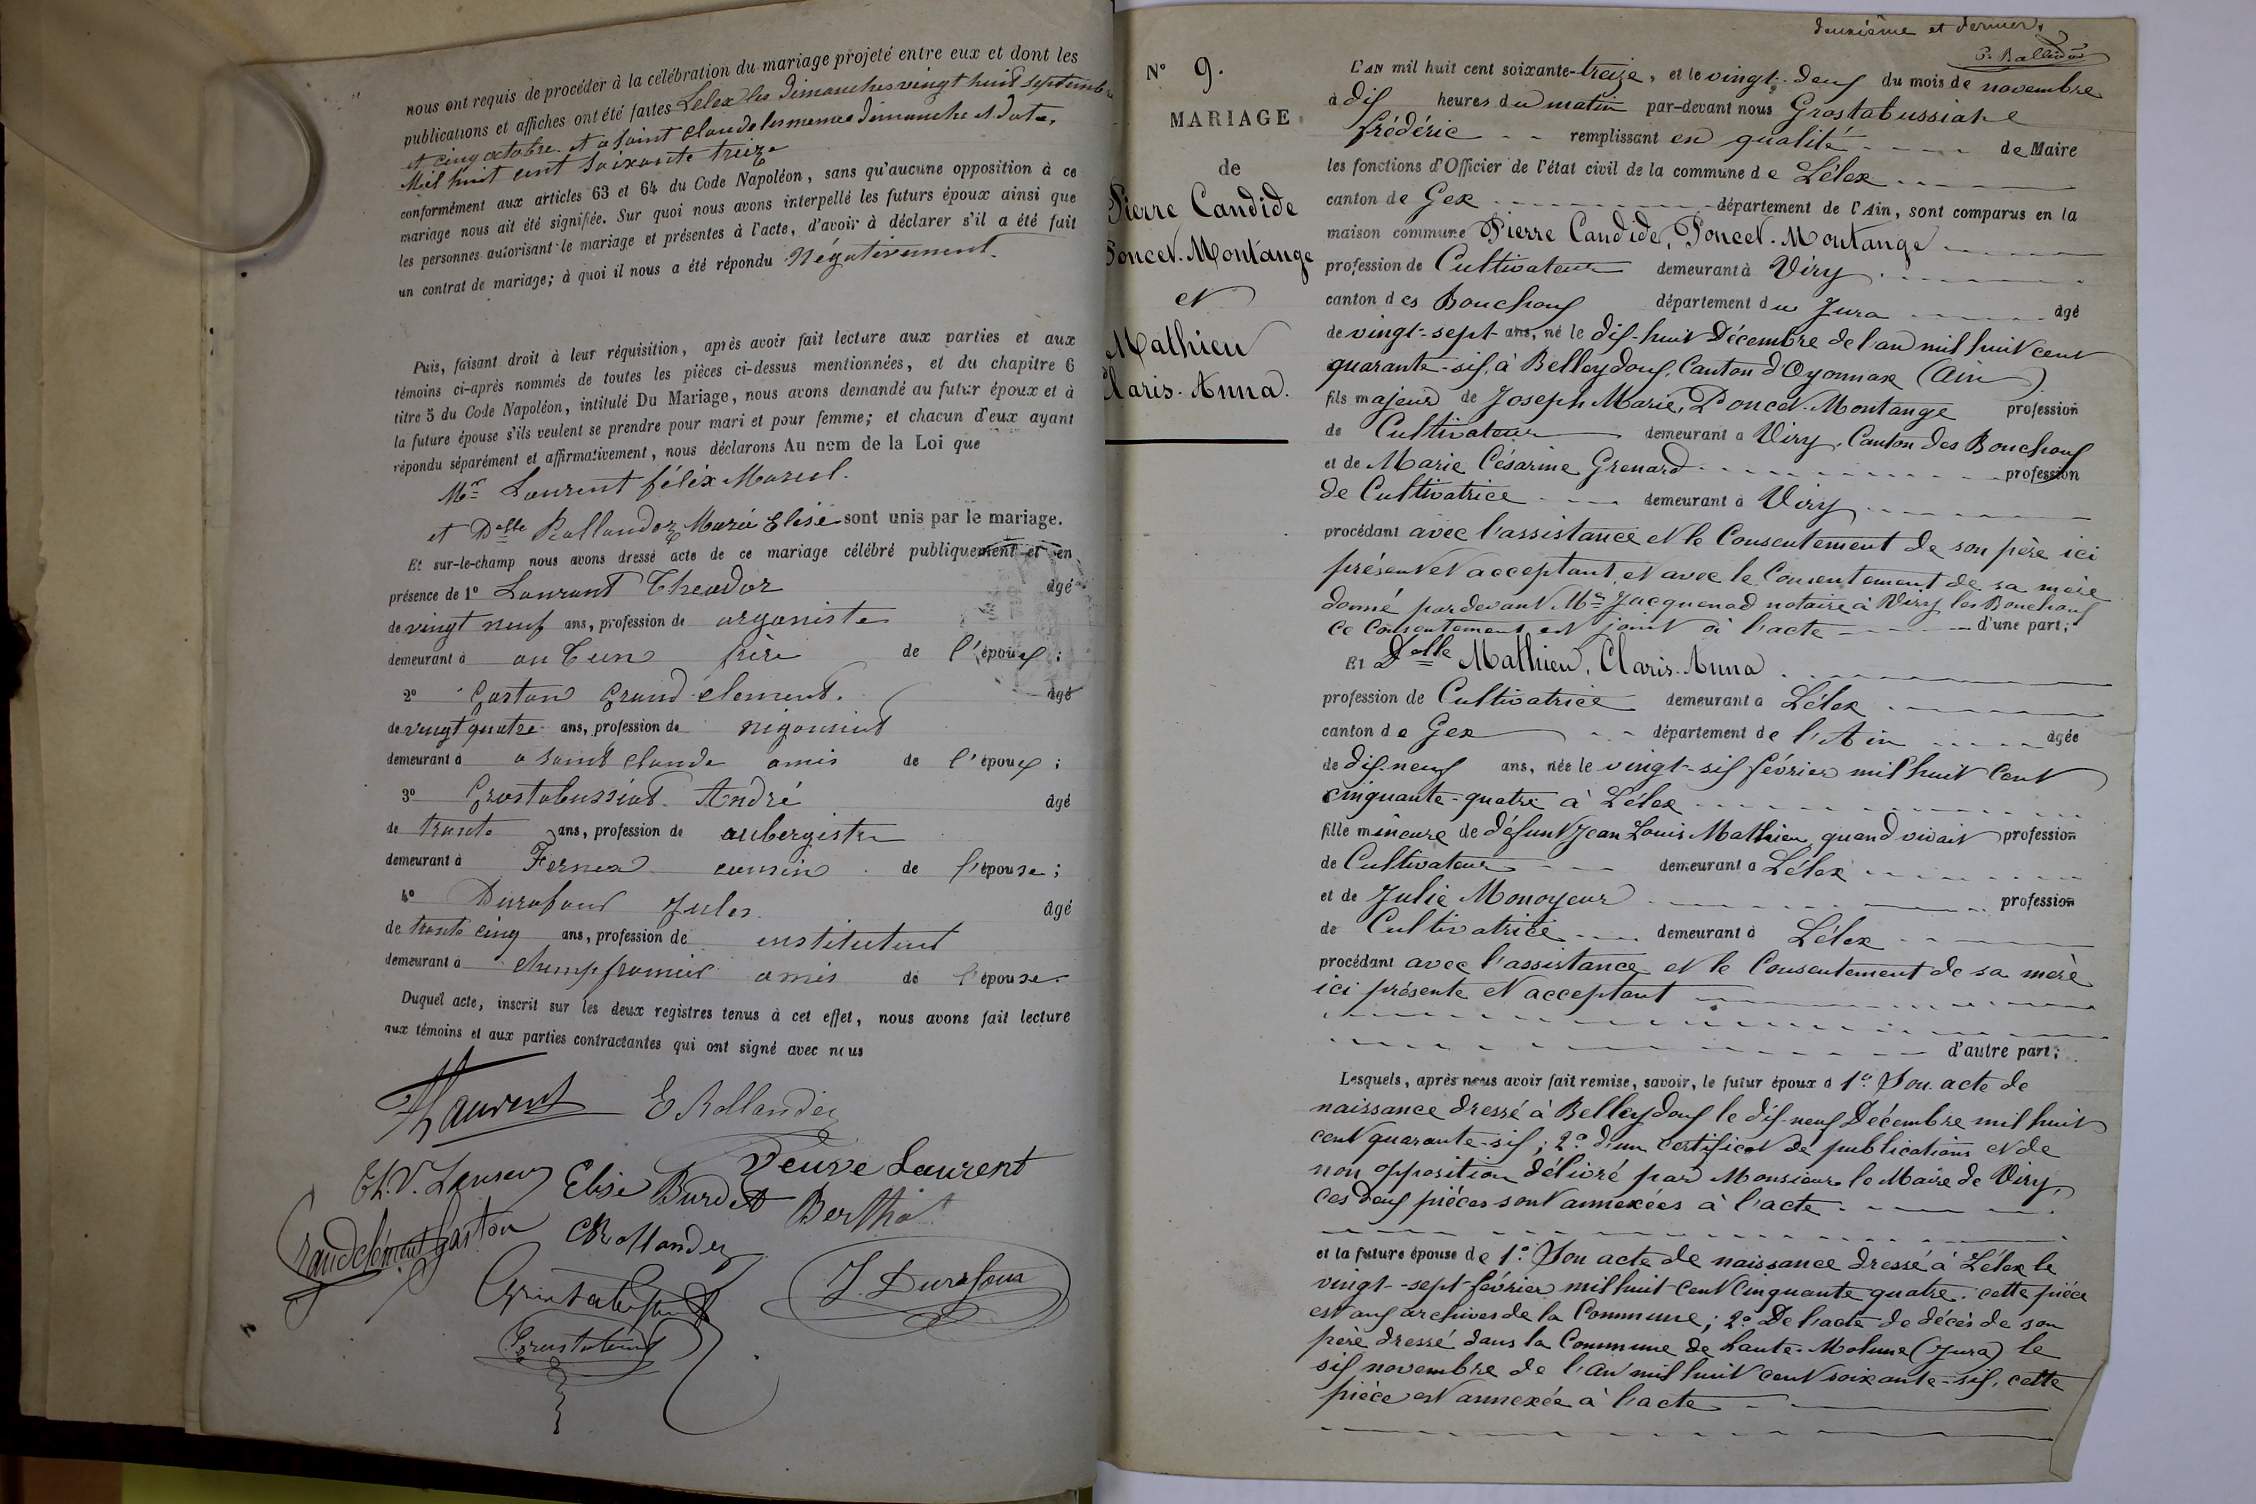 nous ont requis de procéder à la célébration du mariage projeté entre eux et dont les
publications et affiches ont été faites Lélex les dimanches vingt huit septembre
et cinq octobre et a saint claude les memes dimanche et date,
Mil huit cent soixante treize
conformément aux articles 63 et 64 du Code Napoléon, sans qu'aucune opposition à ce
mariage nous ait été signifiée. Sur quoi nous avons interpellé les futurs époux ainsi que
les personnes autorisant le mariage et présentes à l'acte, d'avoir à déclarer s'il a été fait
un contrat de mariage; à quoi il nous a été répondu Négativement.
Puis, faisant droit à leur réquisition, après avoir fait lecture aux parties et aux
témoins ci-après nommés de toutes les pièces ci-dessus mentionnées, et du chapitre 6
titre 5 du Code Napoléon, intitulé Du Mariage, nous avons demandé au futur époux et à
la future épouse s'ils veulent se prendre pour mari et pour femme; et chacun d'eux ayant
répondu séparément et affirmativement, nous déclarons Au nom de la Loi que
Mr Laurent félix Marcel.
et Delle Rollandez Marie Elise sont unis par le mariage.
Et sur-le-champ nous avons dressé acte de ce mariage célébré publiquement et en
présence de 1° Laurent Theodor âgé
de vingt neuf ans, profession de organiste
demeurant à autun frère de l'époux;
2° Gaston Grand-clement. âgé
de vingt quatre ans, profession de négociant
demeurant à a saint claude amis de l'époux;
3° Grostabussiat André âgé
de trente ans, profession de aubergiste
demeurant à Fernex cousin de l'épouse;
4° Durafour Jules âgé
de trente cinq ans, profession de instituteur
demeurant à champfromier amis de l'épouse.
Duquel acte, inscrit sur les deux registres tenus à cet effet, nous avons fait lecture
aux témoins et aux parties contractantes qui ont signé avec nous
Laurent E Rollandez
Veuve Laurent
Th. V. Laurent Elise Burdet Berthot
Grandclément Gaston C Rollandez
J. Durafour
deuxième et dernier
N° 9.
MARIAGE
de
Pierre Candide
Poncet-Montange
et
Mathieu
Claris-Anna.
L'AN mil huit cent soixante-treize, et le vingt-deux du mois de novembre
à dix heures du matin par-devant nous Grostabussiat
frédéric remplissant en qualité de Maire
les fonctions d'Officier de l'état civil de la commune de Lélex
canton de Gex département de l'Ain, sont comparus en la
maison commune Pierre Candide, Poncet-Montange
profession de Cultivateur demeurant à Viry
canton des Bouchoux département du Jura âgé
de vingt-sept ans, né le dix-huit Décembre de l'an mil huit cent
quarante-six, à Belleydoux, Canton d'Oyonnax (Ain)
fils majeur de Joseph Marie, Poncet-Montange profession
de Cultivateur demeurant à Viry, Canton des Bouchoux
et de Marie Césarine Grenard profession
de Cultivatrice demeurant à Viry
procédant avec l'assistance et le Consentement de son père ici
présent et acceptant, et avec le Consentement de sa mère
donné par devant Me Jacquenod notaire à Viry les Bouchoux
ce consentement est joint à l'acte d'une part;
Et Delle Mathieu, Claris-Anna
profession de Cultivatrice demeurant à Lélex
canton de Gex département de l'Ain âgée
de dix-neuf ans, née le vingt-six février mil huit cent
cinquante-quatre à Lélex
fille mineure de défunt Jean Louis Mathieu quand vivait profession
de Cultivateur demeurant à Lélex
et de Julie Monoyeur profession
de Cultivatrice demeurant à Lélex
procédant avec l'assistance et le Consentement de sa mère
ici présente et acceptant
d'autre part;
Lesquels, après nous avoir fait remise, savoir, le futur époux d 1°. Son acte de
naissance dressé à Belleydoux le dix-neuf Décembre mil huit
cent quarante-six; 2°. d'un certificat de publications et de
non opposition délivré par Monsieur le Maire de Viry,
ces deux pièces sont annexées à l'acte.
et la future épouse de 1°. Son acte de naissance dressé à Lélex le
vingt-sept février mil huit cent cinquante quatre, cette pièce
est aux archives de la Commune; 2°. De l'acte de décès de son
père dressé dans la Commune de haute-Molune (Jura) le
six novembre de l'an mil huit cent soixante-six, cette
pièce est annexée à l'acte